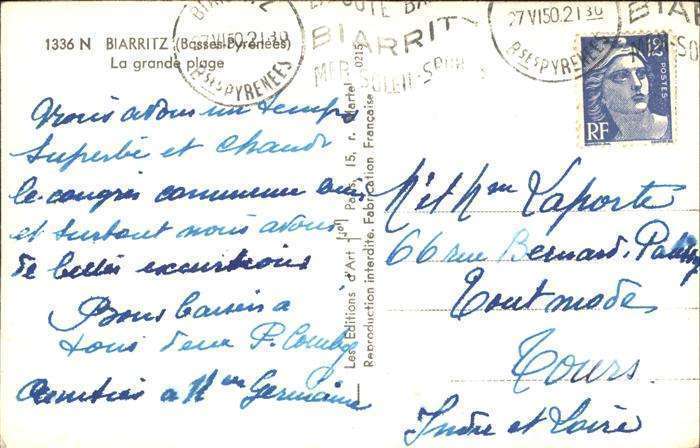 1336 N BIARRITZ (Basses-Pyrénées)
La grande plage
BIARRITZ
27 VI 50. 21 30
BSES PYRENEES
BIARRITZ
MER-SOLEIL-SPORTS
27 VI 50. 21 30
BSES PYRENEES
12F
POSTES
RF
0215
Les Editions d'Art Paris, 15, r. Martel
Reproduction interdite. Fabrication Française
Nous avons un temps
superbe et chaud
le congrès commence
et surtout nous avons
de belles excursions
Bons baisers à
tous deux P.
Amitiés à Mme Germaine
M. et Mme Laporte
66 rue Bernard Palissy
Tout mode
Tours
Indre et Loire